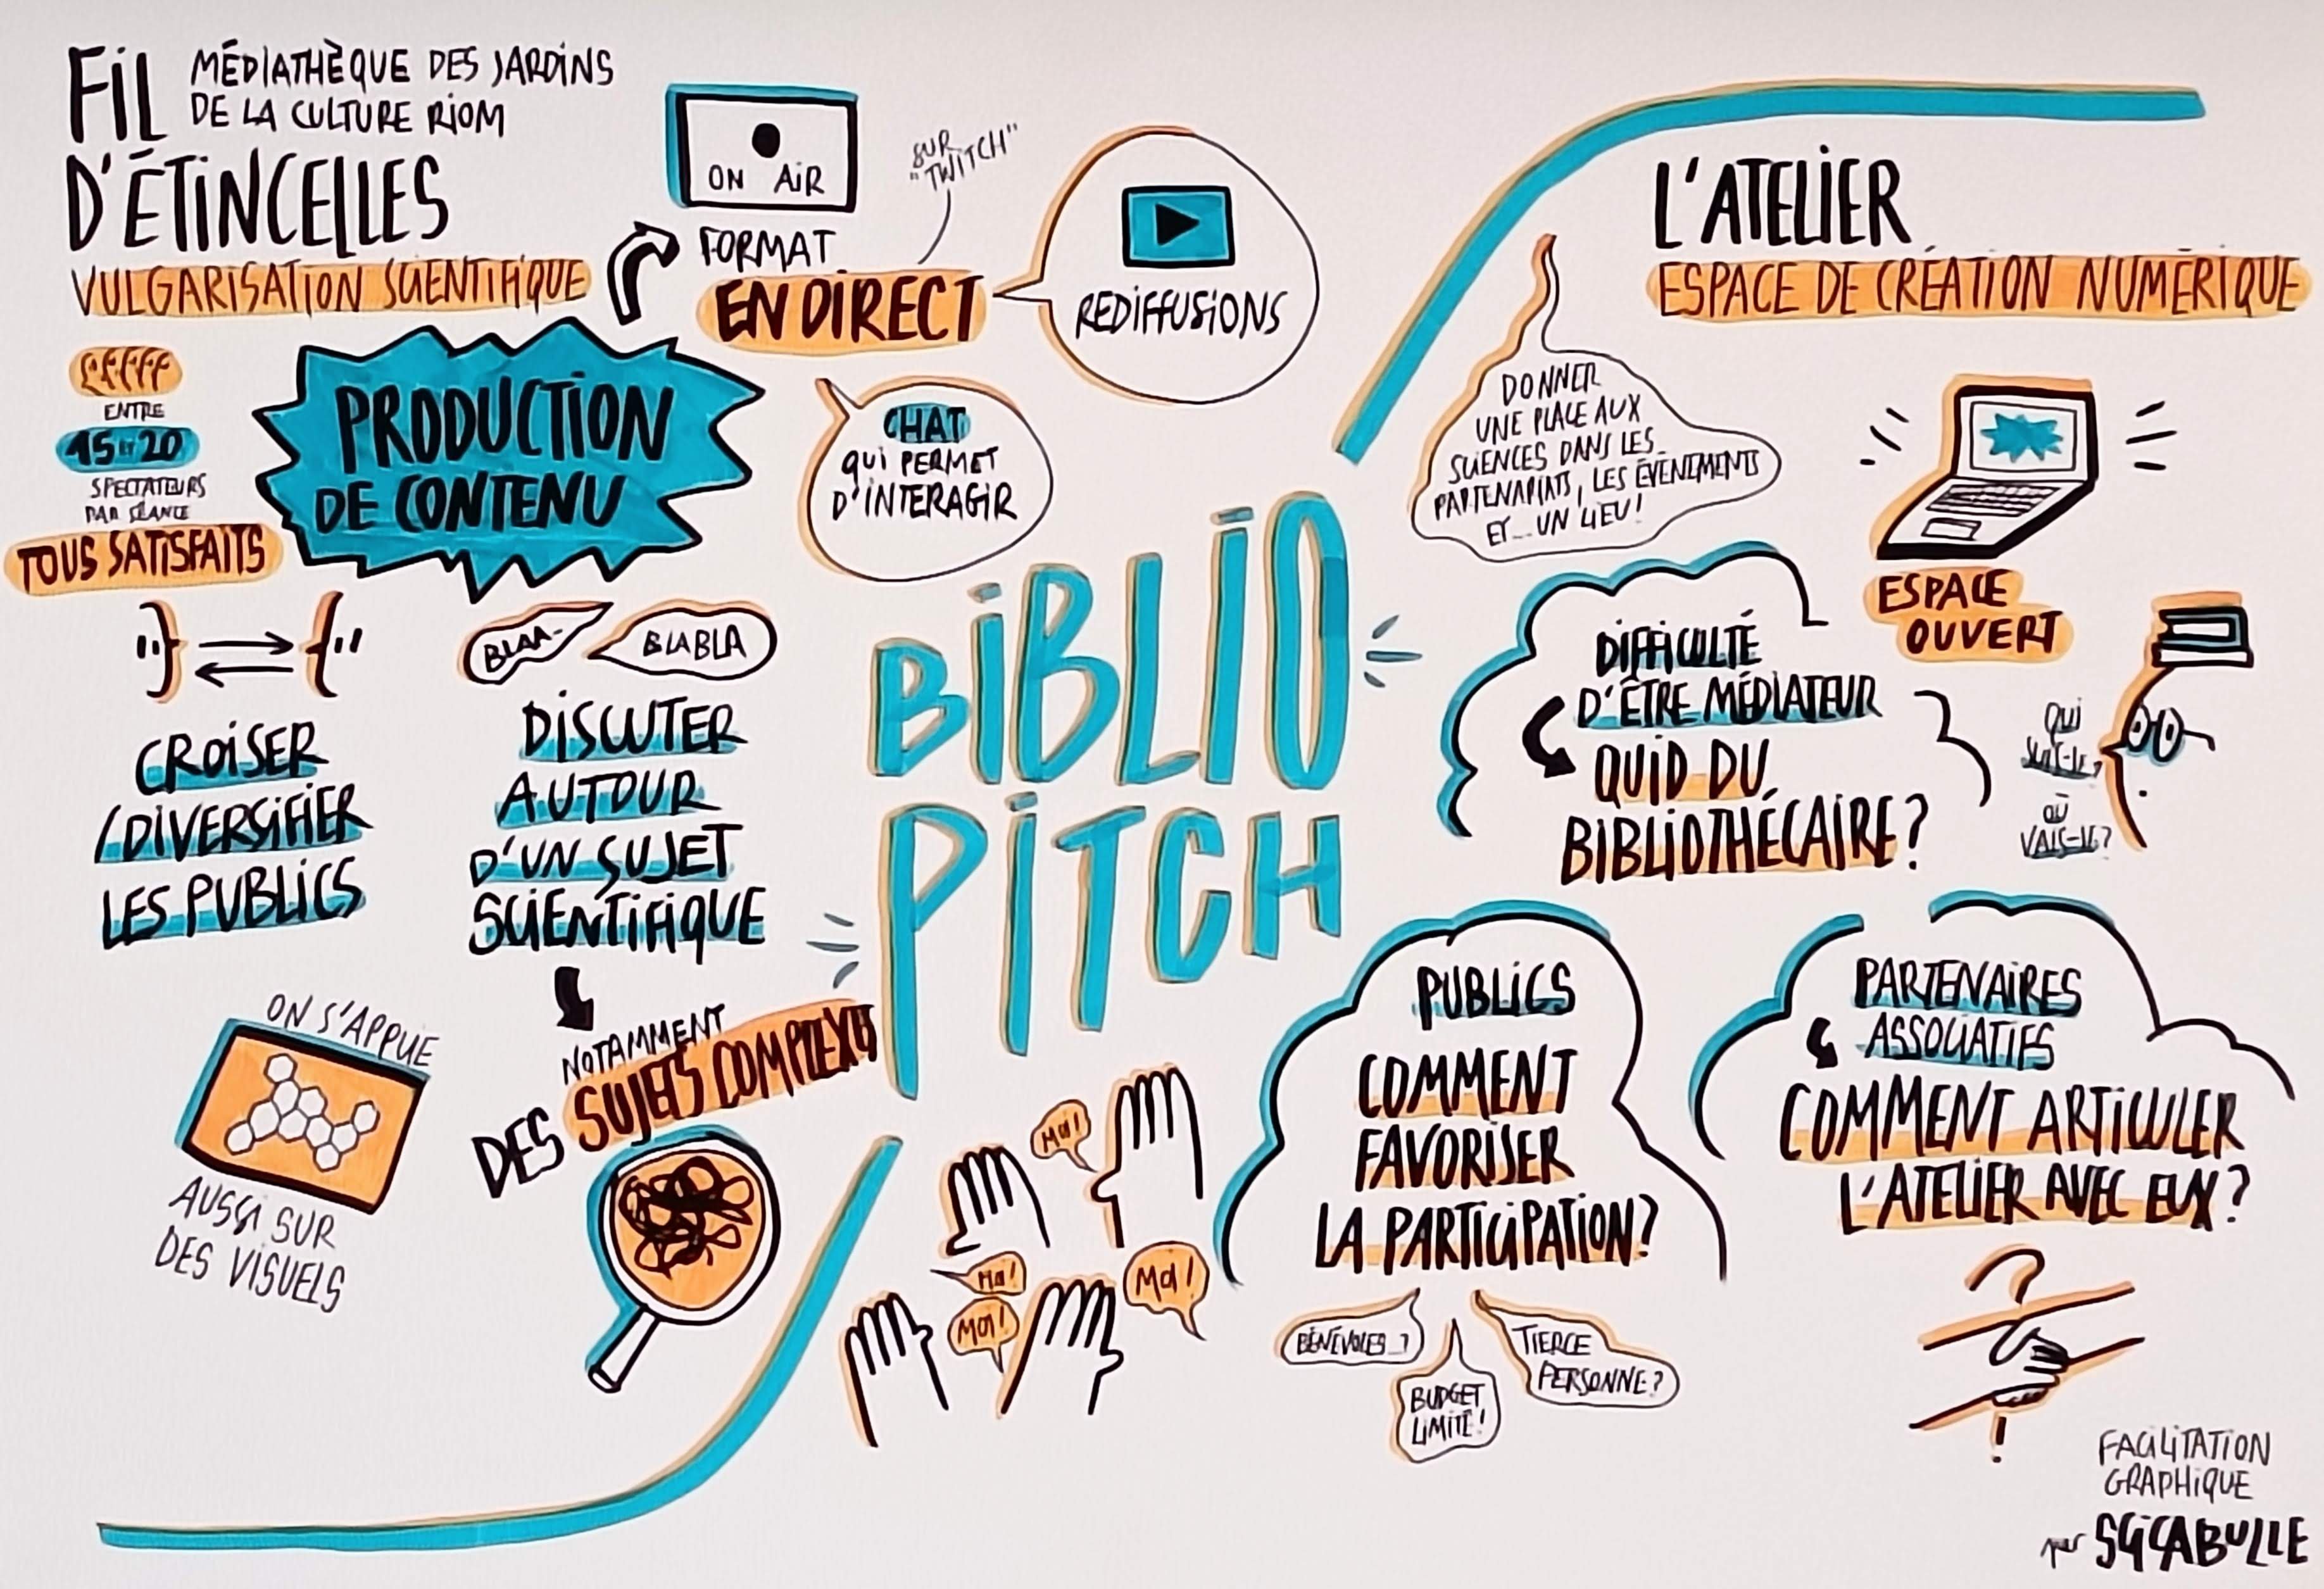 FIL
MÉDIATHÈQUE DES JARDINS
DE LA CULTURE RIOM
D'ÉTINCELLES
VULGARISATION SCIENTIFIQUE
ENTRE
15 ET 20
SPECTATEURS
PAR SÉANCE
TOUS SATISFAITS
PRODUCTION
DE CONTENU
ON AIR
FORMAT
EN DIRECT
SUR
"TWITCH"
REDIFFUSIONS
CHAT
QUI PERMET
D'INTERAGIR
CROISER
/DIVERSIFIER
LES PUBLICS
BLAA-
BLABLA
DISCUTER
AUTOUR
D'UN SUJET
SCIENTIFIQUE
NOTAMMENT
DES SUJETS COMPLEXES
ON S'APPUIE
AUSSI SUR
DES VISUELS
BIBLIO
PITCH
L'ATELIER
ESPACE DE CRÉATION NUMÉRIQUE
DONNER
UNE PLACE AUX
SCIENCES DANS LES
PARTENARIATS, LES ÉVÈNEMENTS
ET... UN LIEU!
ESPACE
OUVERT
DIFFICULTÉ
D'ÊTRE MÉDIATEUR
QUID DU
BIBLIOTHÉCAIRE?
QUI
SUIS-JE?
OÙ
VAIS-JE?
PUBLICS
COMMENT
FAVORISER
LA PARTICIPATION?
MOI!
MOI!
MOI!
MOI!
BÉNÉVOLES...?
BUDGET
LIMITÉ!
TIERCE
PERSONNE?
PARTENAIRES
ASSOCIATIFS
COMMENT ARTICULER
L'ATELIER AVEC EUX?
?
!
FACILITATION
GRAPHIQUE
par SCICABULLE